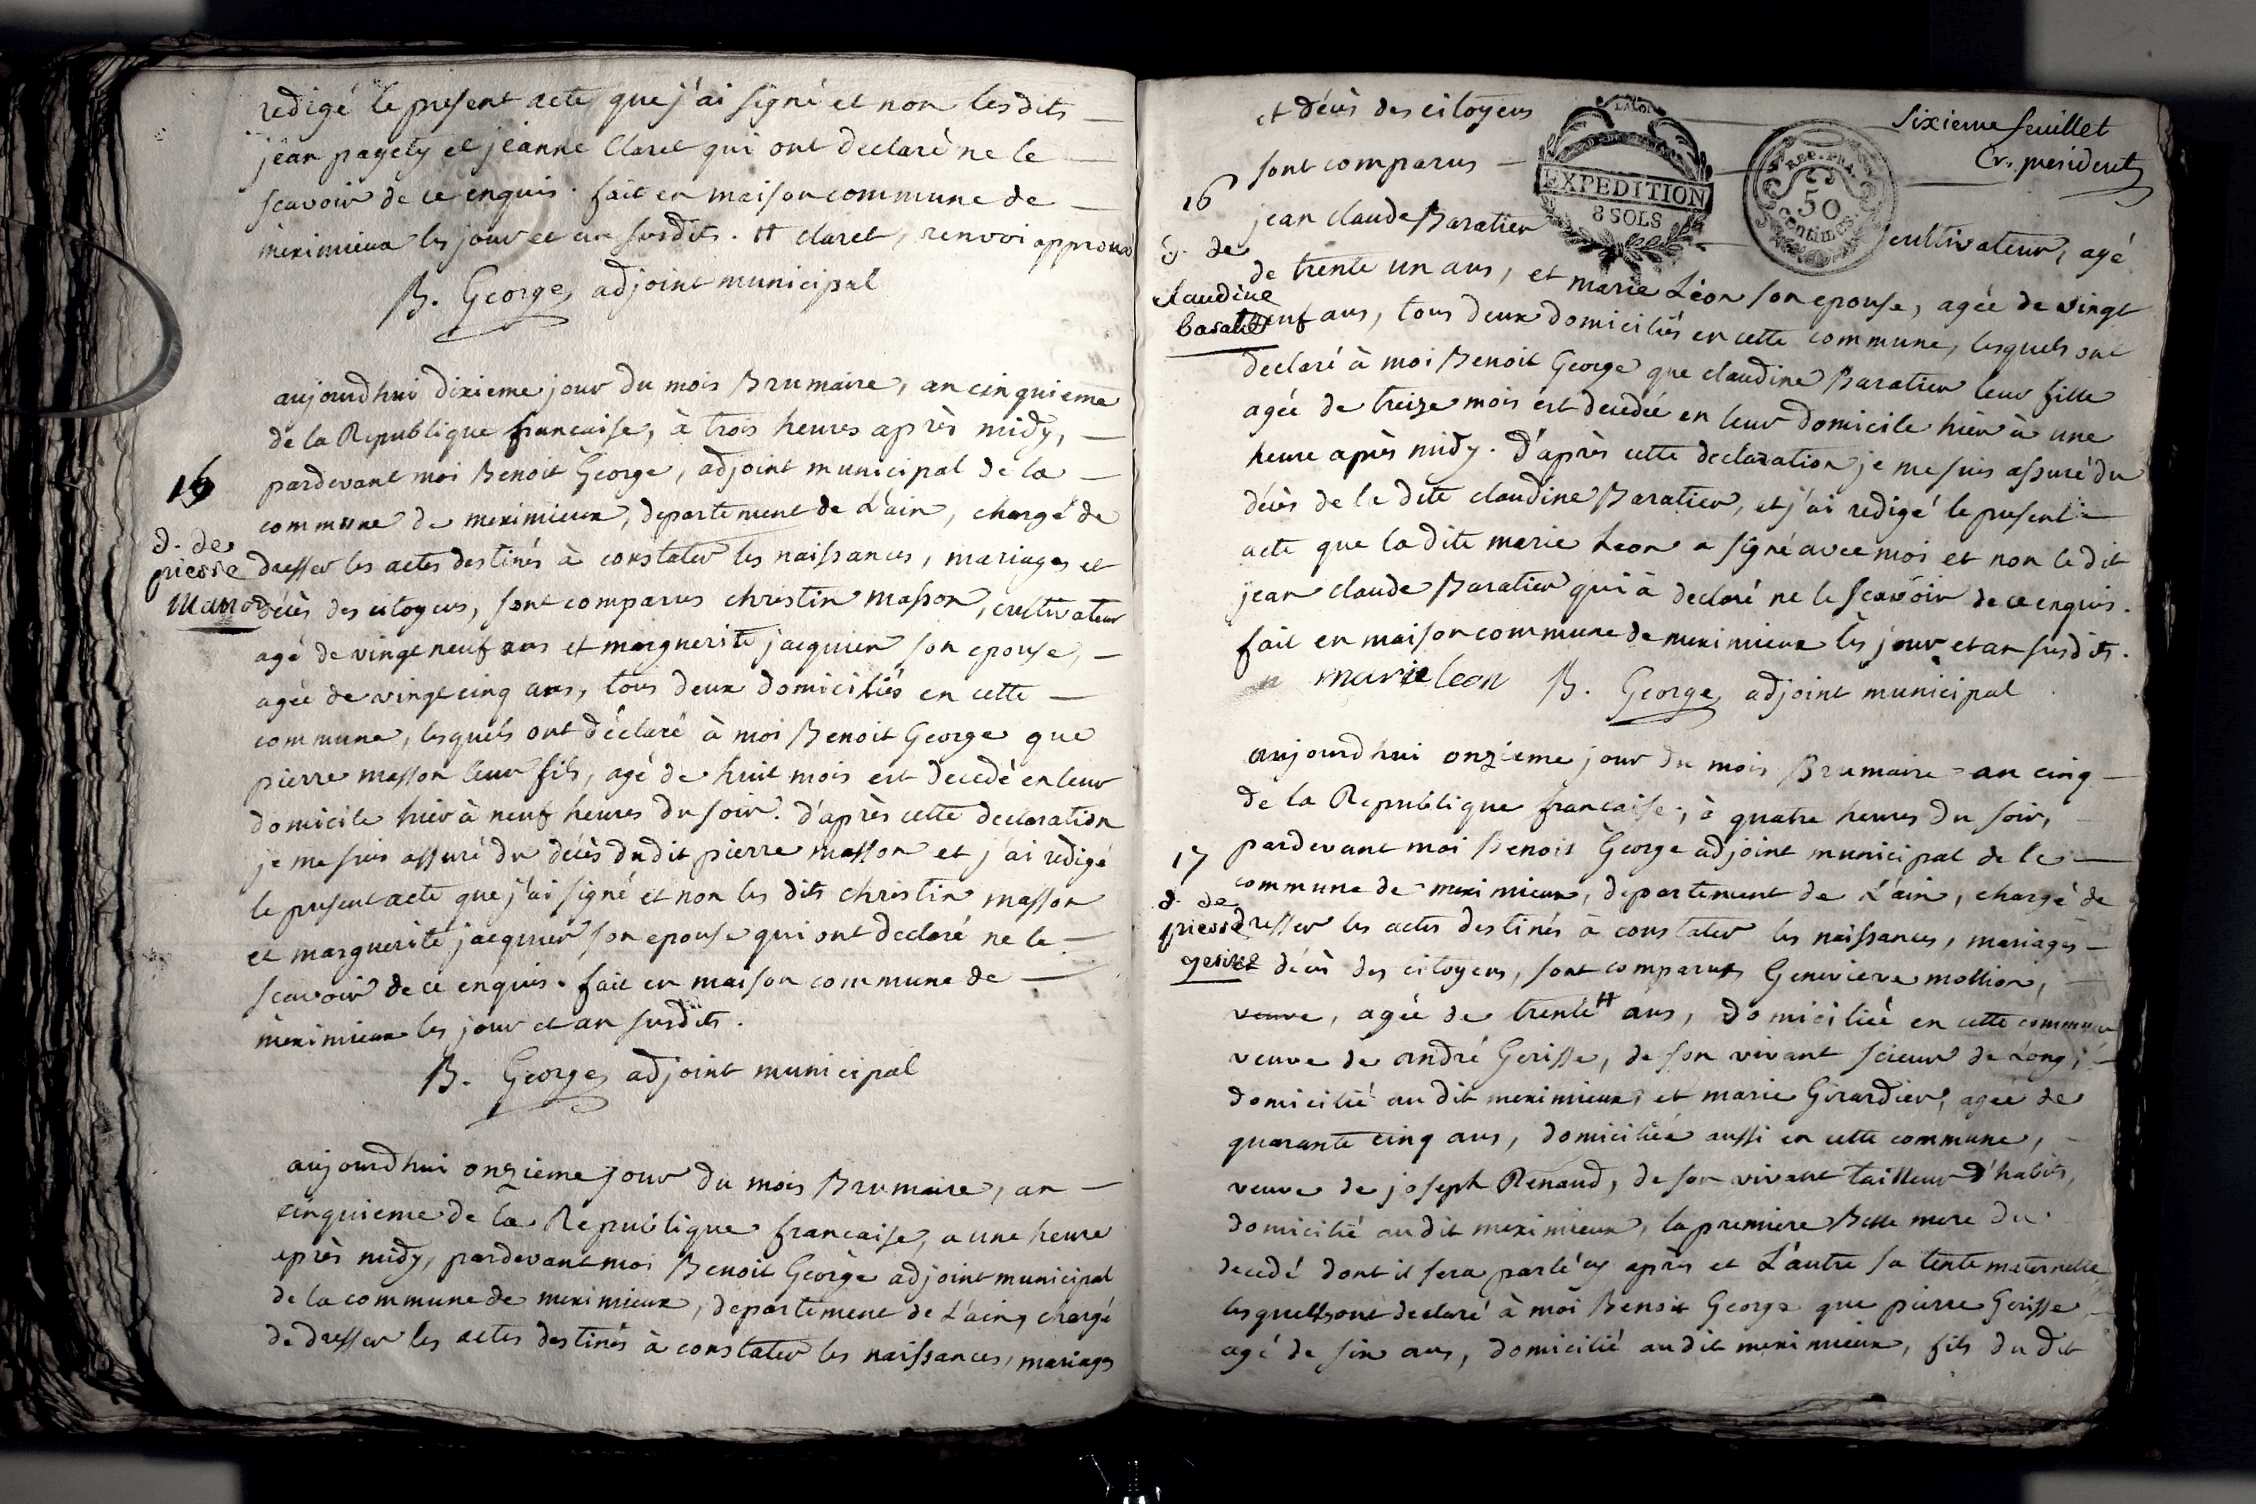 redigé le present acte que j'ai signé et non lesdits
jean pagety et jeanne Claret qui ont declaré ne le
scavoir de ce enquis. fait en maison commune de
meximieux les jour et an susdits. # claret, renvoi approuvé
B. George, adjoint municipal
aujourdhui dixieme jour du mois Brumaire, an cinquieme
de la Republique francaise, à trois heures après midy,
15
pardevant moi Benoit George, adjoint municipal de la
commune de meximieux, departement de L'ain, chargé de
d. de
pierre
Masson
dresser les actes destinés à constater les naissances, mariages et
décès des citoyens, sont comparus christin masson, cultivateur
agé de vingt neuf ans et marguerite jacquier son epouse,
agée de vingt cinq ans, tous deux domiciliés en cette
commune, lesquels ont déclaré à moi Benoit George que
pierre masson leur fils, agé de huit mois est decedé en leur
domicile hier à neuf heures du soir. d'après cette declaration
je me suis assuré du décès dudit pierre masson et j'ai redigé
le present acte que j'ai signé et non les dits christin masson
et marguerite jacquier son epouse qui ont declaré ne le
scavoir de ce enquis. fait en maison commune de
meximieux les jour et an susdits.
B. George, adjoint municipal
aujourdhui onzieme jour du mois Brumaire, an
cinquieme de la Republique francaise, a une heure
après midy, pardevant moi Benoit George adjoint municipal
de la commune de meximieux, departement de L'ain, chargé
de dresser les actes destinés à constater les naissances, mariages
et décès des citoyens
sixieme feuillet
Cr. president
LA LOI
EXPEDITION
8 SOLS
REP. FRA.
50
centimes
sont comparus
16
d. de
claudine
baratier
jean claude Baratier cultivateur, agé
de trente un ans, et marie Léon son epouse, agée de vingt
neuf ans, tous deux domiciliés en cette commune, lesquels ont
declaré à moi Benoit George que claudine Baratier leur fille
agée de treize mois est decedée en leur domicile hier à une
heure après midy. d'après cette declaration je me suis assuré du
décès de la dite claudine Baratier, et j'ai redigé le present
acte que la dite marie Leon a signé avec moi et non le dit
jean claude Baratier qui à declaré ne le scavoir de ce enquis.
fait en maison commune de meximieux les jour et an susdits.
marie leon B. George, adjoint municipal
aujourdhui onzieme jour du mois Brumaire an cinq
de la Republique francaise, à quatre heures du soir,
17
d. de
pierre
gerisse
pardevant moi Benoit George adjoint municipal de la
commune de meximieux, departement de L'ain, chargé de
dresser les actes destinés à constater les naissances, mariages
et décès des citoyens, sont comparus Genevieve mollion,
veuve, agée de trente # ans, domiciliée en cette commune
veuve de andré Gerisse, de son vivant scieur de Long,
domicilié au dit meximieux, et marie Girardier, agée de
quarante cinq ans, domiciliée aussi en cette commune,
veuve de joseph Renaud, de son vivant tailleur d'habits,
domicilié audit meximieux, la premiere Belle mere du
decedé dont il sera parlé cy après et L'autre sa tente maternelle
lesquelles ont declaré à moi Benoit George que pierre Gerisse
agé de six ans, domicilié audit meximieux, fils du dit